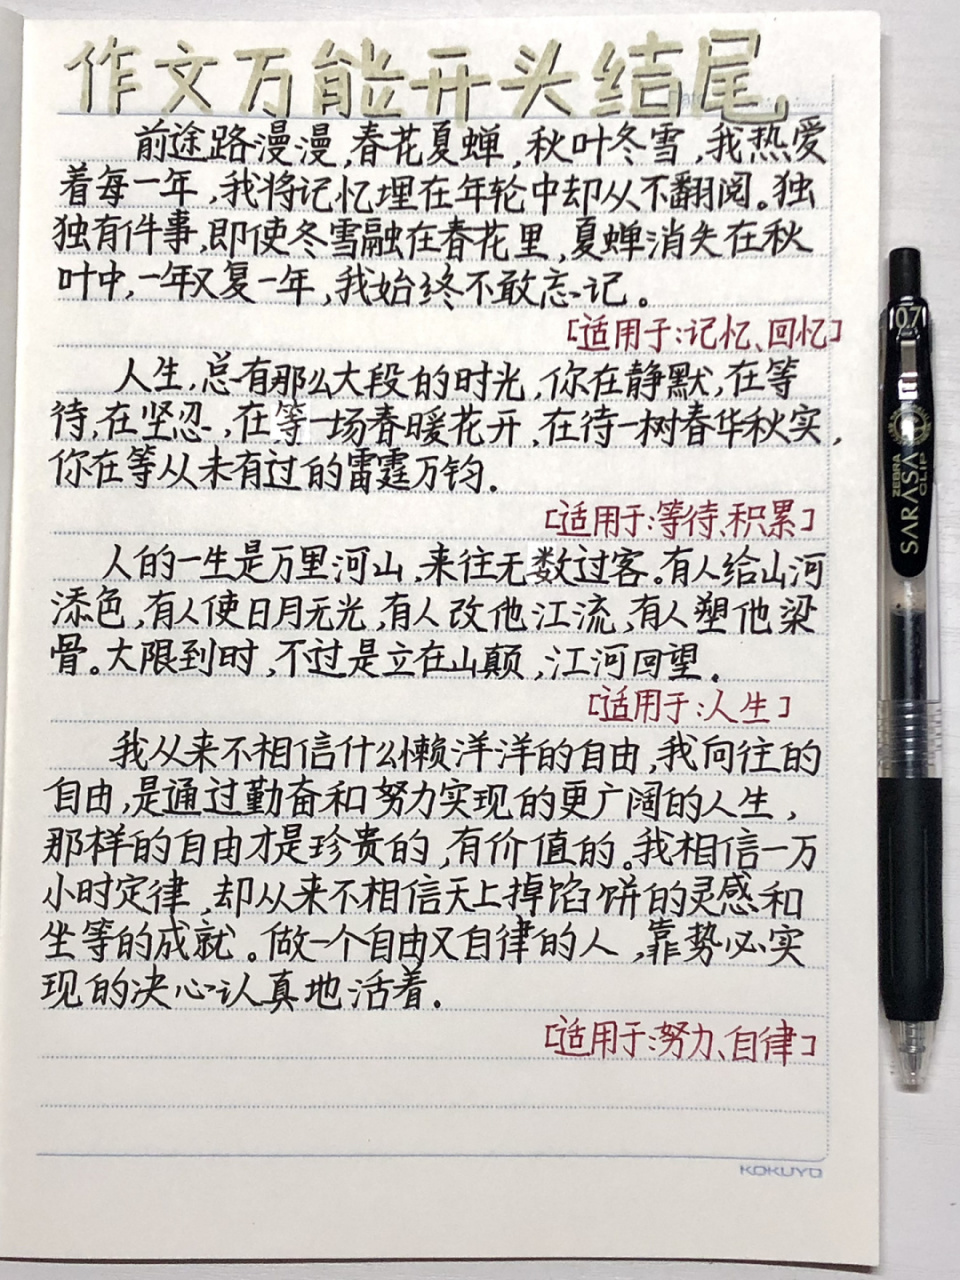 作文万能开头结尾.
前途路漫漫,春花夏蝉,秋叶冬雪,我热爱
着每一年,我将记忆埋在年轮中却从不翻阅。独
独有件事,即使冬雪融在春花里,夏蝉消失在秋
叶中,一年又复一年,我始终不敢忘记。
[适用于:记忆、回忆]
人生,总有那么大段的时光,你在静默,在等
待,在坚忍,在等一场春暖花开,在待一树春华秋实,
你在等从未有过的雷霆万钧.
[适用于:等待、积累]
人的一生是万里河山,来往无数过客。有人给山河
添色,有人使日月无光,有人改他江流,有人塑他梁
骨。大限到时,不过是立在山颠,江河回望.
[适用于:人生]
我从来不相信什么懒洋洋的自由,我向往的
自由,是通过勤奋和努力实现的更广阔的人生,
那样的自由才是珍贵的,有价值的。我相信一万
小时定律,却从来不相信天上掉馅饼的灵感和
坐等的成就。做一个自由又自律的人,靠势必实
现的决心认真地活着.
[适用于:努力、自律]
KOKUYO
0.7
ZEBRA
SARASA
CLIP